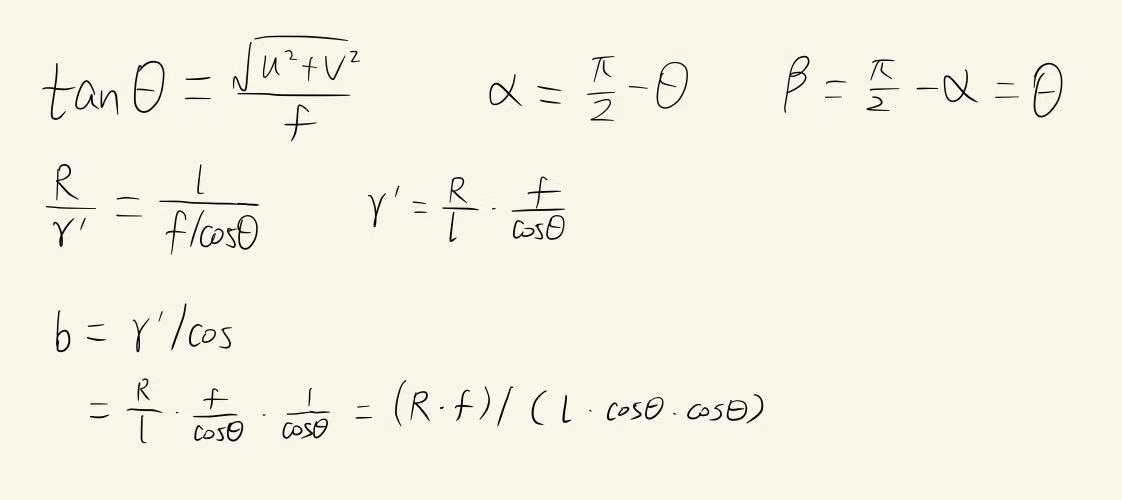 tanθ = √(u²+v²) / f    α = π/2 - θ    β = π/2 - α = θ
R/r' = l/(f/cosθ)    r' = R/l · f/cosθ
b = r'/cos
= R/l · f/cosθ · 1/cosθ = (R·f)/(l·cosθ·cosθ)